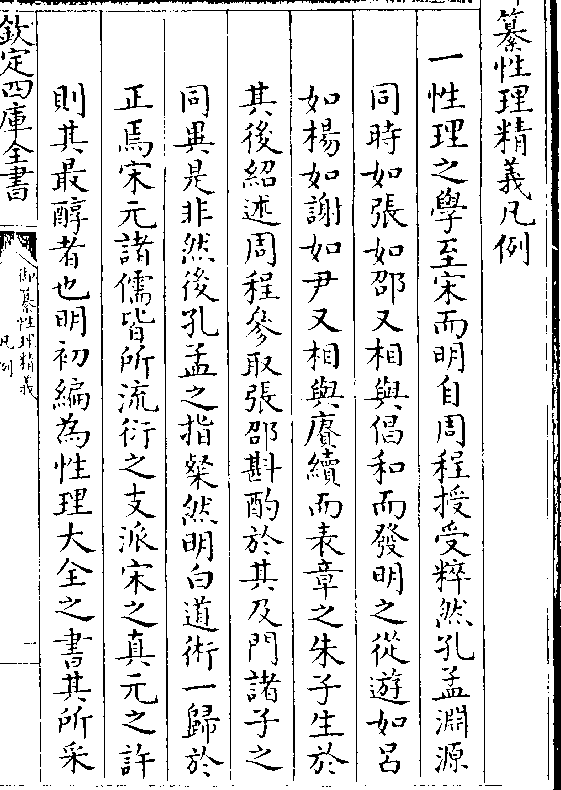 纂性理精義凡例
一性理之學至宋而明自周程授受粹然孔孟淵源
同時如張如邵又相與倡和而發明之從遊如呂
如楊如謝如尹又相與賡續而表章之朱子生於
其後紹述周程參取張邵斟酌於其及門諸子之
同異是非然後孔孟之指粲然明白道術一歸於
正焉宋元諸儒皆所流衍之支派宋之真元之許
則其最醇者也明初編為性理大全之書其所采
欽定四庫全書
御纂性理精義
凡例
一